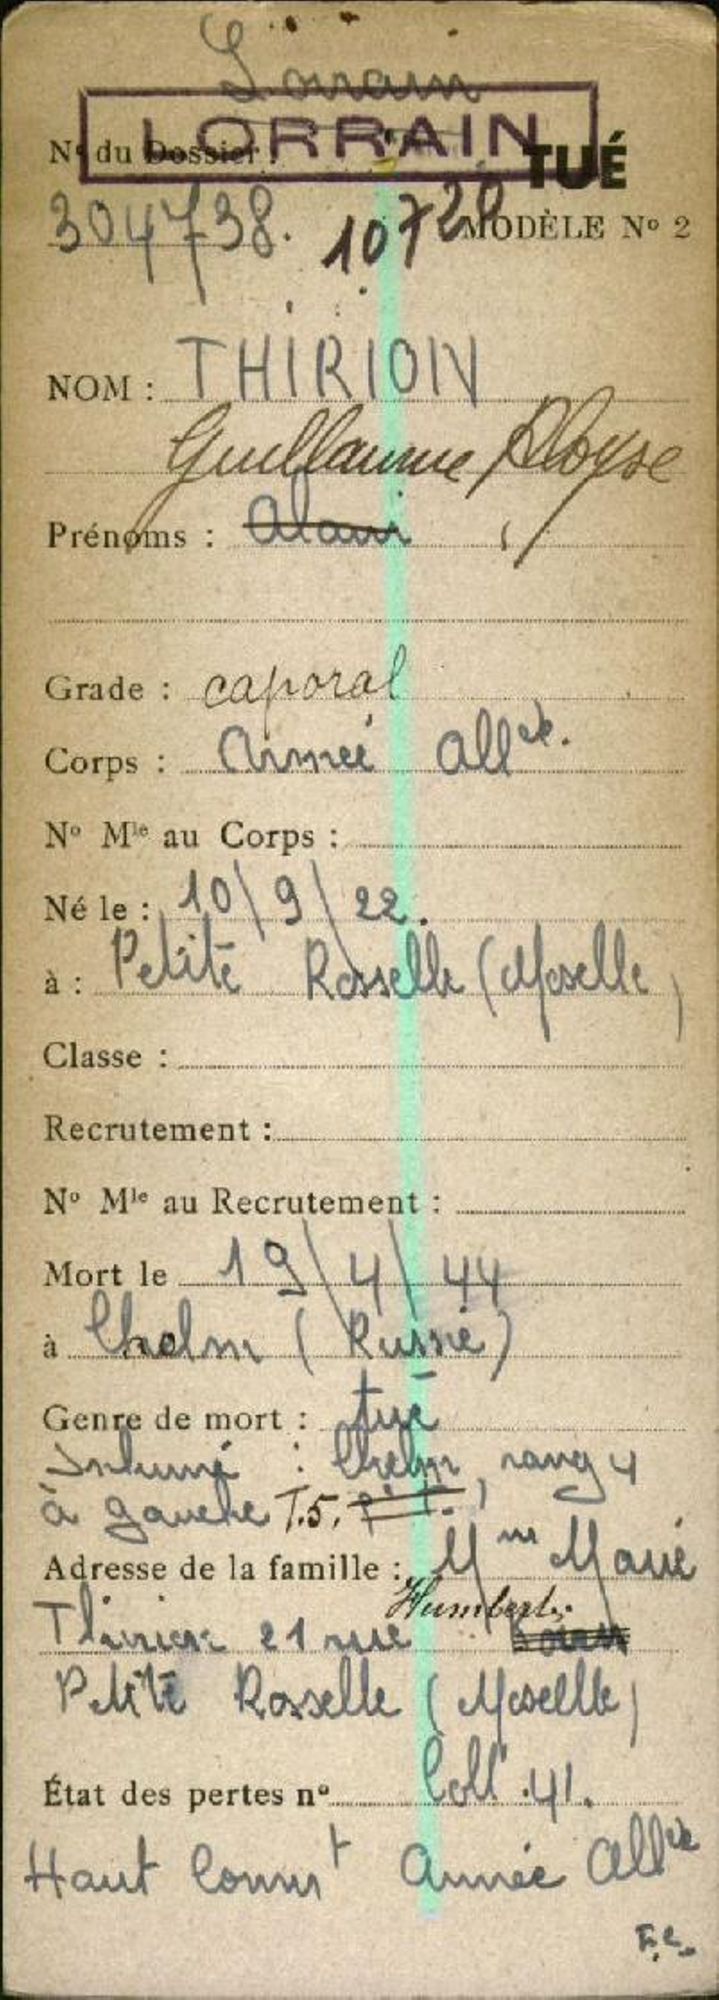 Lorrain
LORRAIN
N° du Dossier :
TUÉ
304738. 10720
MODÈLE N° 2
NOM : THIRION
Guillaume Aloyse
Prénoms : Alain
Grade : caporal
Corps : Armée Allde.
N° Mle au Corps :
Né le : 10/9/22.
à : Petite Rosselle (Moselle)
Classe :
Recrutement :
N° Mle au Recrutement :
Mort le 19/4/44
à Chelm (Russie)
Genre de mort : tué
Inhumé : Chelm, rang 4
à gauche T.5.
Adresse de la famille : Mme Marie
Humbert.
Thirion 21 rue
Petite Rosselle (Moselle)
État des pertes n° Coll. 41.
Haut Commt Armée Allde